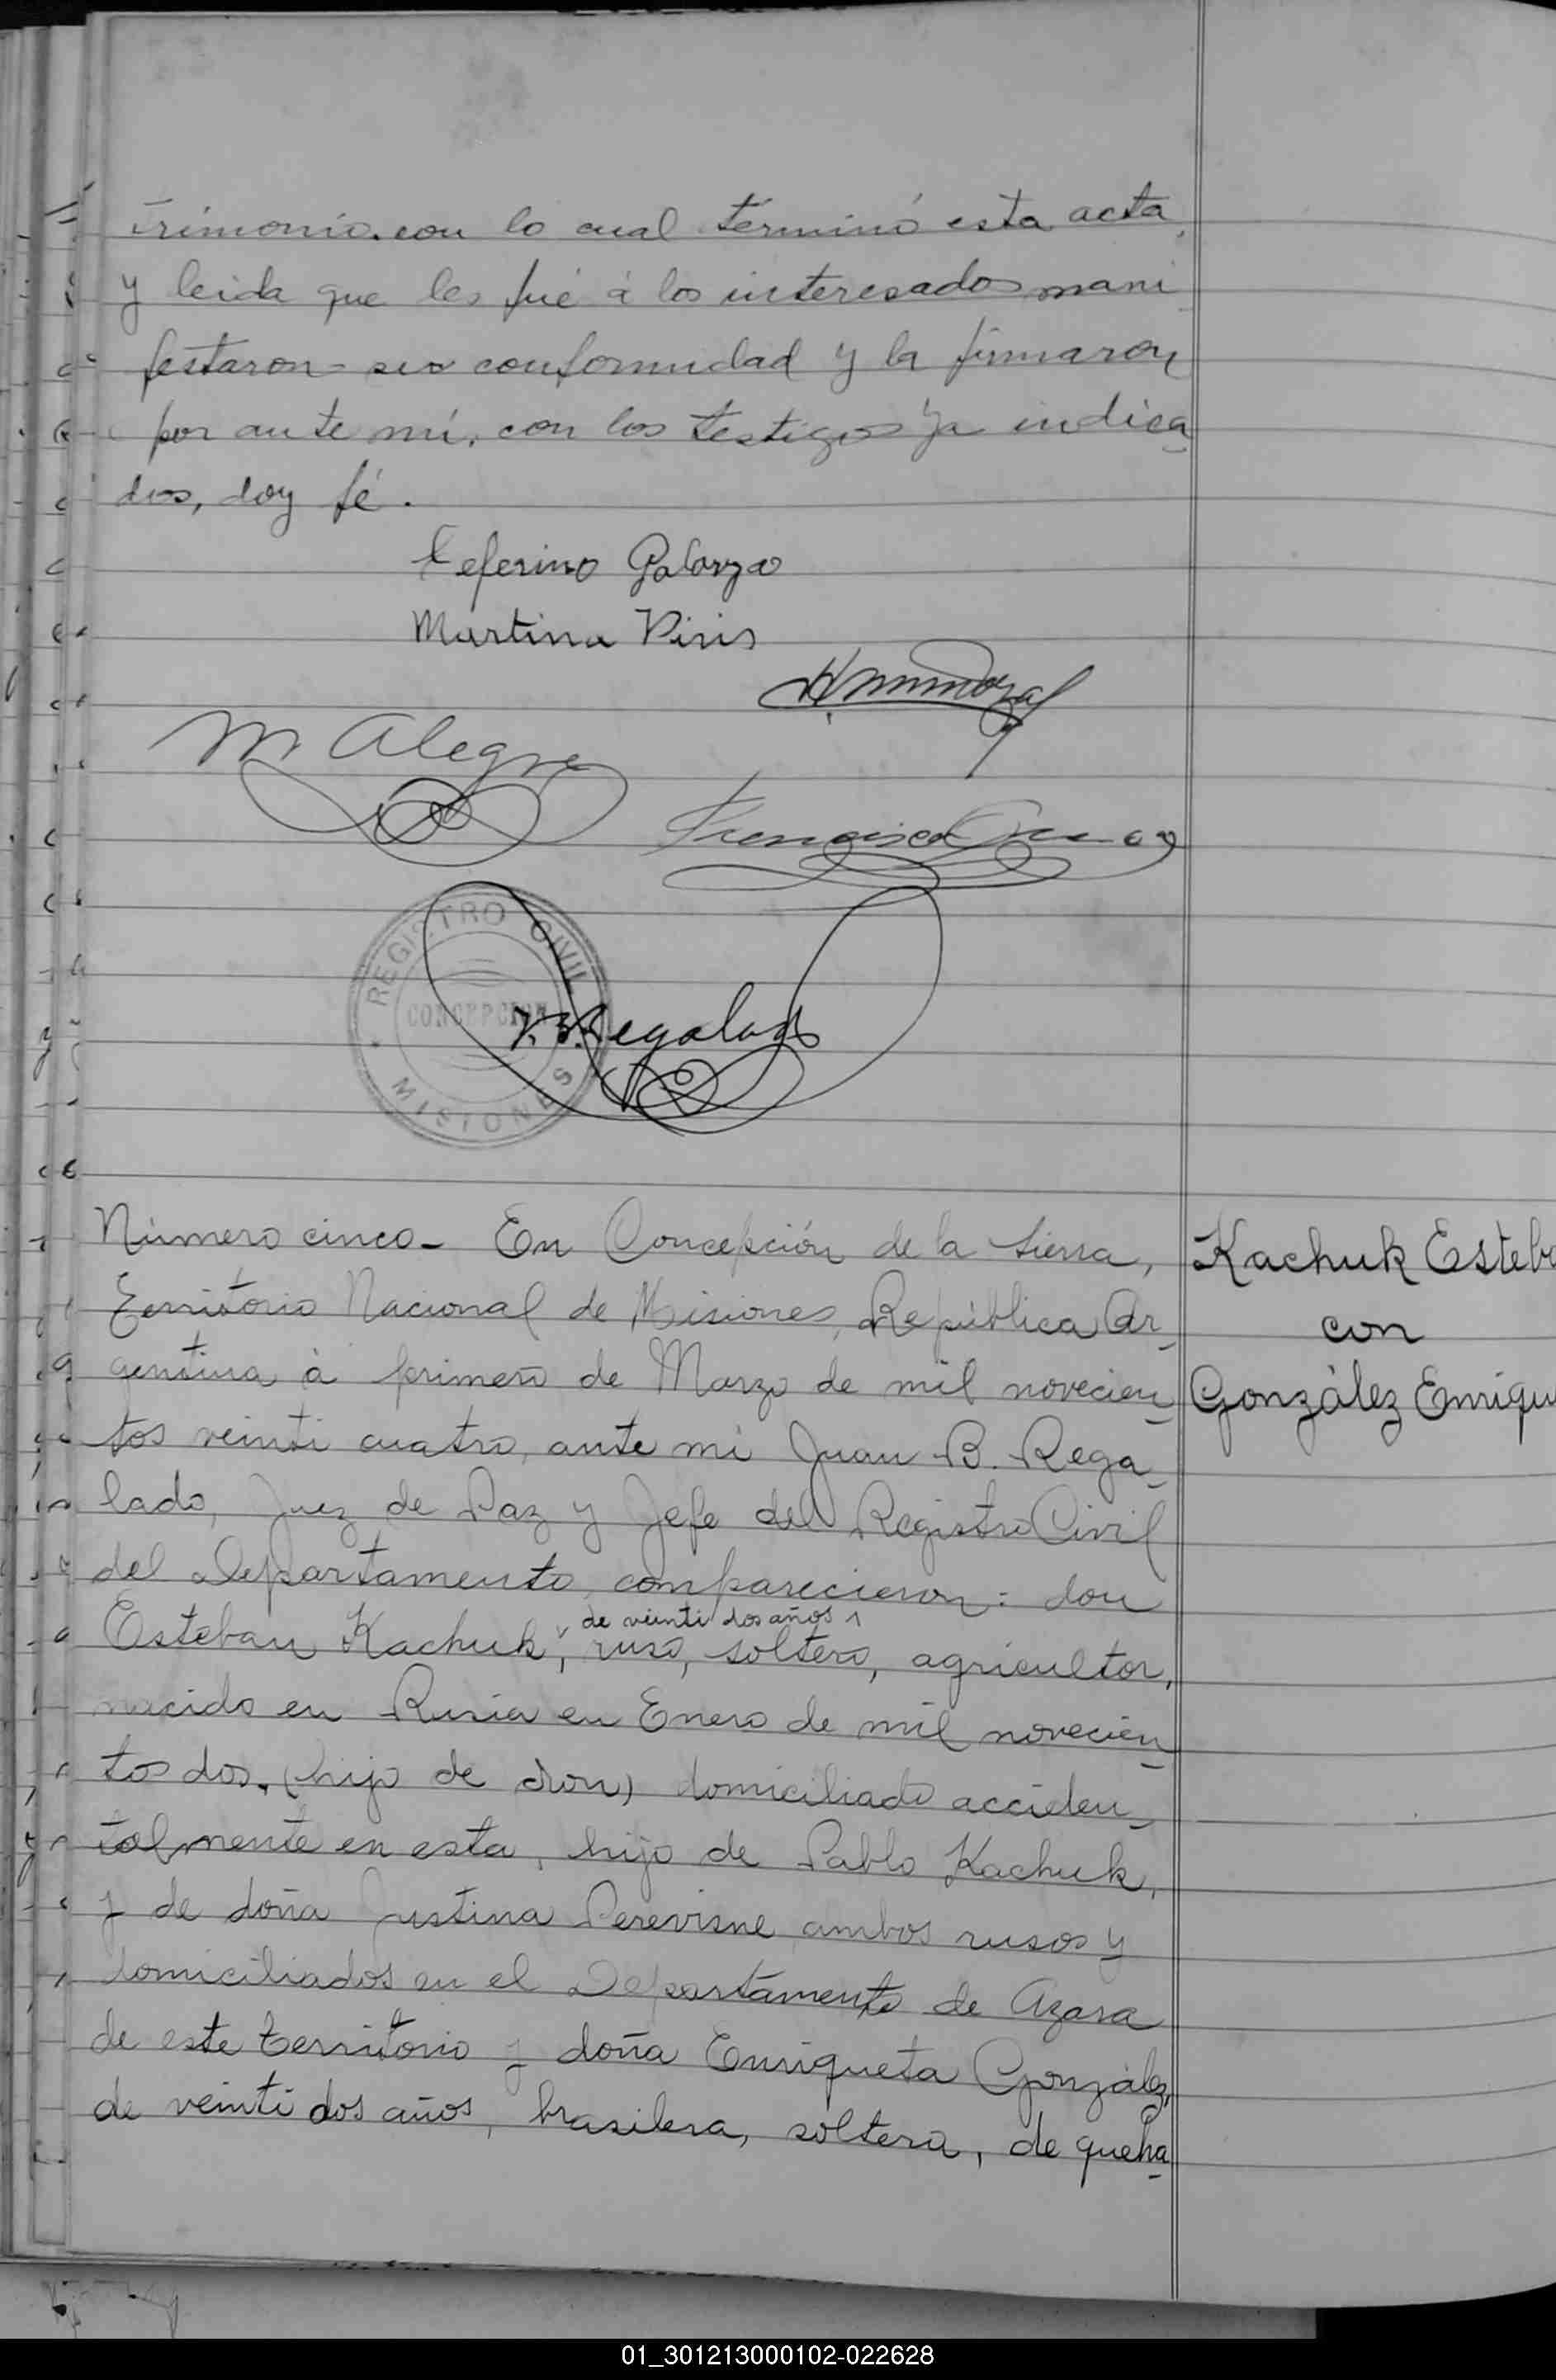 trimonio. con lo cual terminó esta acta,
y leida que les fué á los interesados mani
festaron su conformidad y la firmaron
por ante mí, con los testigos ya indica
dos, doy fé.
Ceferino Galarza
Martina Piris
M Alegre
Francisco
REGISTRO CIVIL
CONCEPCION
MISIONES
J. B. Regalado
Número cinco- En Concepción de la Sierra,
Kachuk Esteba
Territorio Nacional de Misiones, República Ar
con
gentina á primero de Marzo de mil novecien
González Enriqu
tos veinti cuatro, ante mi Juan B. Rega
lado, Juez de Paz y Jefe del Registro Civil
del Departamento, comparecieron: don
de veinti dos años
Esteban Kachuk, ruso, soltero, agricultor,
nacido en Rusia en Enero de mil novecien
tos dos, (hijo de don) domiciliado acciden
talmente en esta, hijo de Pablo Kachuk,
y de doña Justina Perevisne ambos rusos y
domiciliados en el Departamento de Azara
de este territorio y doña Enriqueta González,
de veinti dos años, brasilera, soltera, de queha
01_301213000102-022628